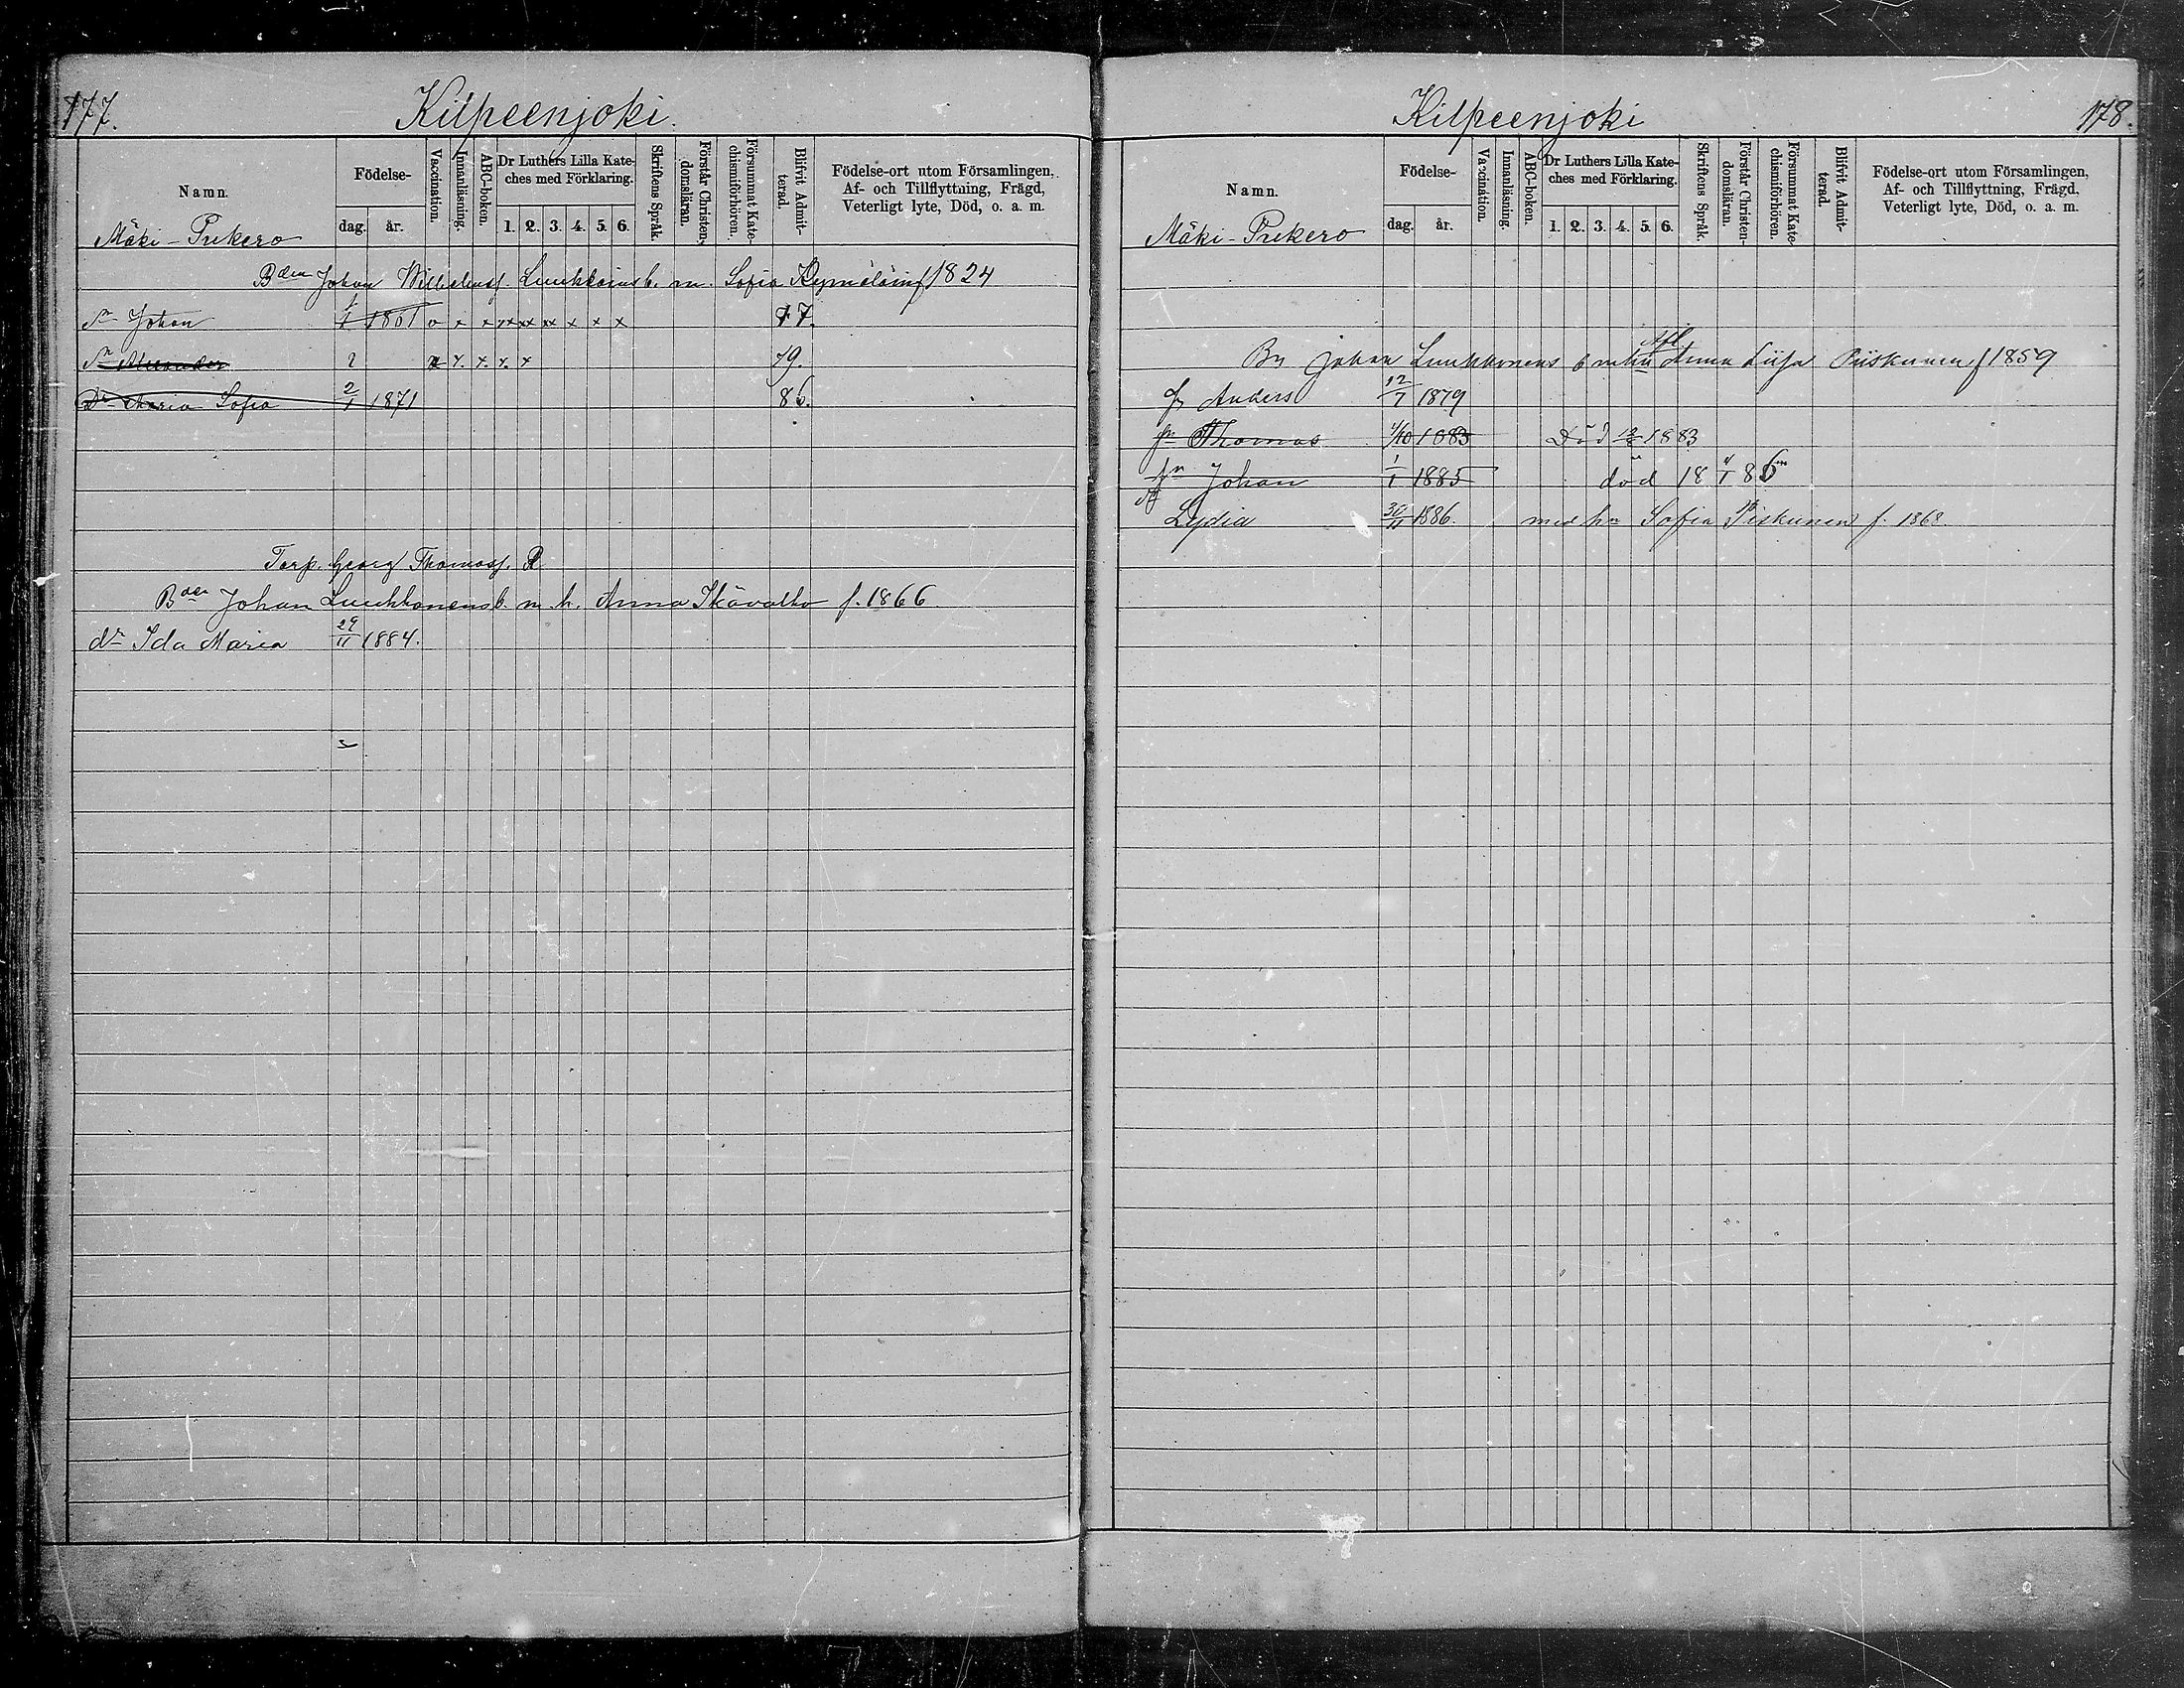 177.
Kilpeenjoki.
Namn.
Födelse-
dag.
år.
Vaccination.
Innanläsning.
ABC-boken.
Dr Luthers Lilla Kate-
ches med Förklaring.
1. 2. 3. 4. 5. 6.
Skriftens Språk.
Förstår Christen-
domsläran.
Försummat Kate-
chismiförhören.
Blifvit Admit-
terad.
Födelse-ort utom Församlingen,
Af- och Tillflyttning, Frägd,
Veterligt lyte, Död, o. a. m.
Mäki-Pukero
Bden Johan Wilhelmsf. Luukkoins b. m. Sofia f 1824
Sn Johan 1/1 1861 o x x x x x x x x 77.
Sn Alexander 2 x x. x. x. x 79.
Dr Maria Sofia 2/1 1871 86.
Torp. Georg Thomasf. R
Bden Johan Luukkonens b. m. h. Anna f. 1866
dr Ida Maria 29/11 1884.
Kilpeenjoki
178.
Namn.
Födelse-
dag.
år.
Vaccination.
Innanläsning.
ABC-boken.
Dr Luthers Lilla Kate-
ches med Förklaring.
1. 2. 3. 4. 5. 6.
Skriftens Språk.
Förstår Christen-
domsläran.
Försummat Kate-
chismiförhören.
Blifvit Admit-
terad.
Födelse-ort utom Församlingen,
Af- och Tillflyttning, Frägd,
Veterligt lyte, Död, o. a. m.
Mäki-Pukero
Bn Johan Luukkonens b m hu Anna Liisa Piiskunen f 1859
Anders 12/7 1879
Thomas 4/10 1883 Död 1883
Johan 1/1 1885 död 18 4/1 86
Lydia 30/11 1886. med hn Sofia Piskunen f. 1868